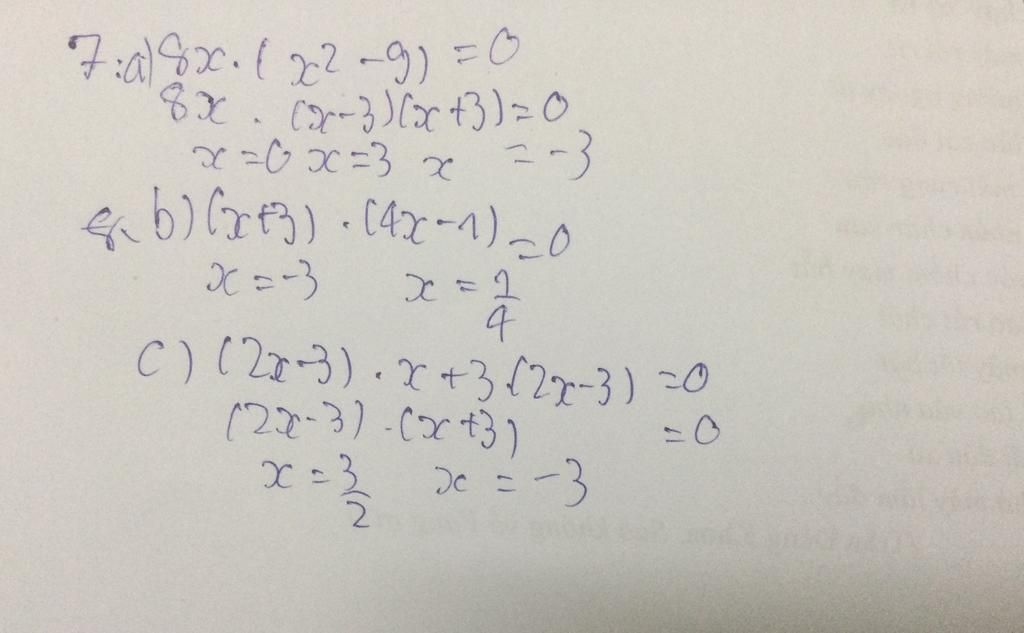 7:a) 8x.(x² -9) = 0
8x . (x-3)(x+3)=0
x=0 x=3 x = -3
b) (x+3) .(4x-1) =0
x=-3 x = 1/4
c) (2x-3) . x+3.(2x-3) =0
(2x-3) .(x+3) =0
x = 3/2 x = -3